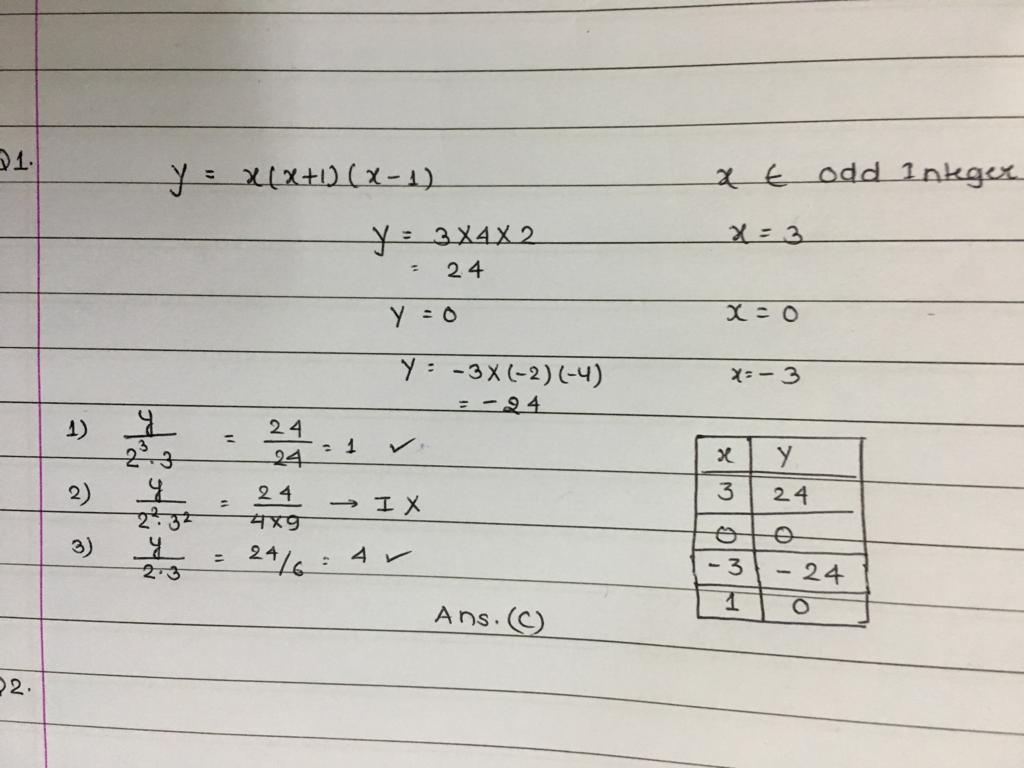 Q1. y = x(x+1)(x-1) x ∈ odd Integer
y = 3×4×2 x = 3
= 24
y = 0 x = 0
y = -3×(-2)(-4) x=-3
= -24
1) y/2³·3 = 24/24 = 1 ✓
2) y/2²·3² = 24/4×9 → I ×
3) y/2·3 = 24/6 = 4 ✓
x y
3 24
0 0
-3 -24
1 0
Ans. (C)
Q2.